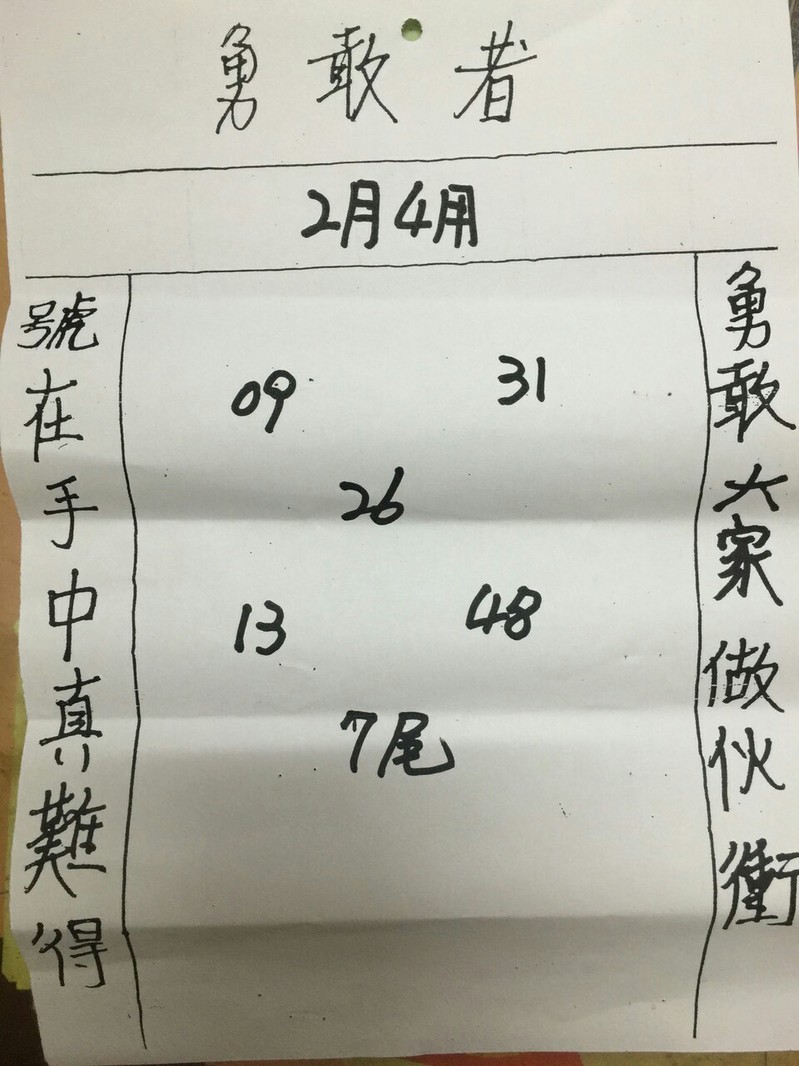 勇敢者
2月4用
勇敢大家做伙衝
09 31
26
13 48
7尾
號在手中真難得